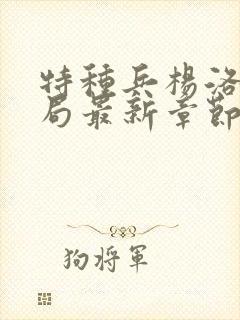 特種兵楊洛
局最新章節
狗將軍